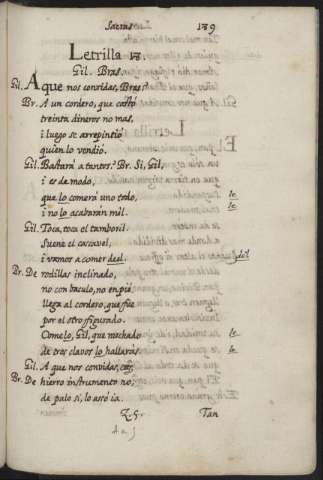 Sacras 189
Letrilla 18.
Gil. Bras.
Gil. A que nos convidas, Bras?
Br. A un cordero, que costó
treinta dineros no mas,
i luego se arrepintió
quien lo vendió.
Gil. Bastará a tantos? Br. Si, Gil,
i es de modo,
que lo comerá uno todo, le
i no lo acabarán mil. le
Gil. Toca, toca el tamboril.
Suene el cascavel,
i vamos a comer del. dél
Br. De rodillas inclinado,
no con baculo, no en pié
llega al cordero, que fué
por el otro figurado.
Comelo, Gil, que mechado le
de tres clavos lo hallarás le
Gil. A que nos convidas, &c.
Br. De hierro instrumento no;
de palo si, lo assó ia.
Tan